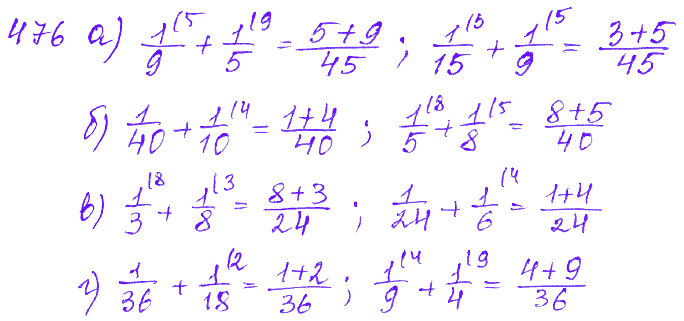 476 а) 1/9^(5 + 1/5^(9 = (5+9)/45 ; 1/15^(3 + 1/9^(5 = (3+5)/45
б) 1/40 + 1/10^(4 = (1+4)/40 ; 1/5^(8 + 1/8^(5 = (8+5)/40
в) 1/3^(8 + 1/8^(3 = (8+3)/24 ; 1/24 + 1/6^(4 = (1+4)/24
г) 1/36 + 1/18^(2 = (1+2)/36 ; 1/9^(4 + 1/4^(9 = (4+9)/36